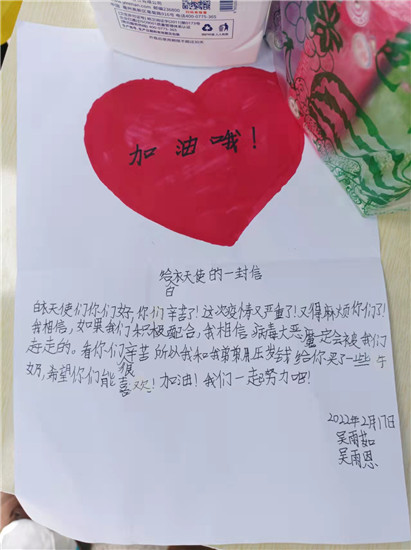 加油哦!
给衣天使的一封信
白
白衣天使们你们好,你们辛苦了!这次疫情又严重了!又得麻烦你们了!
我相信,如果我们积极配合,我相信病毒大恶魔定会被我们
赶走的。看你们辛苦所以我和我弟弟用压岁钱给你买了一些牛
很
奶,希望你们能喜欢!加油!我们一起努力吧!
2022年2月17日
吴雨茹
吴雨恩